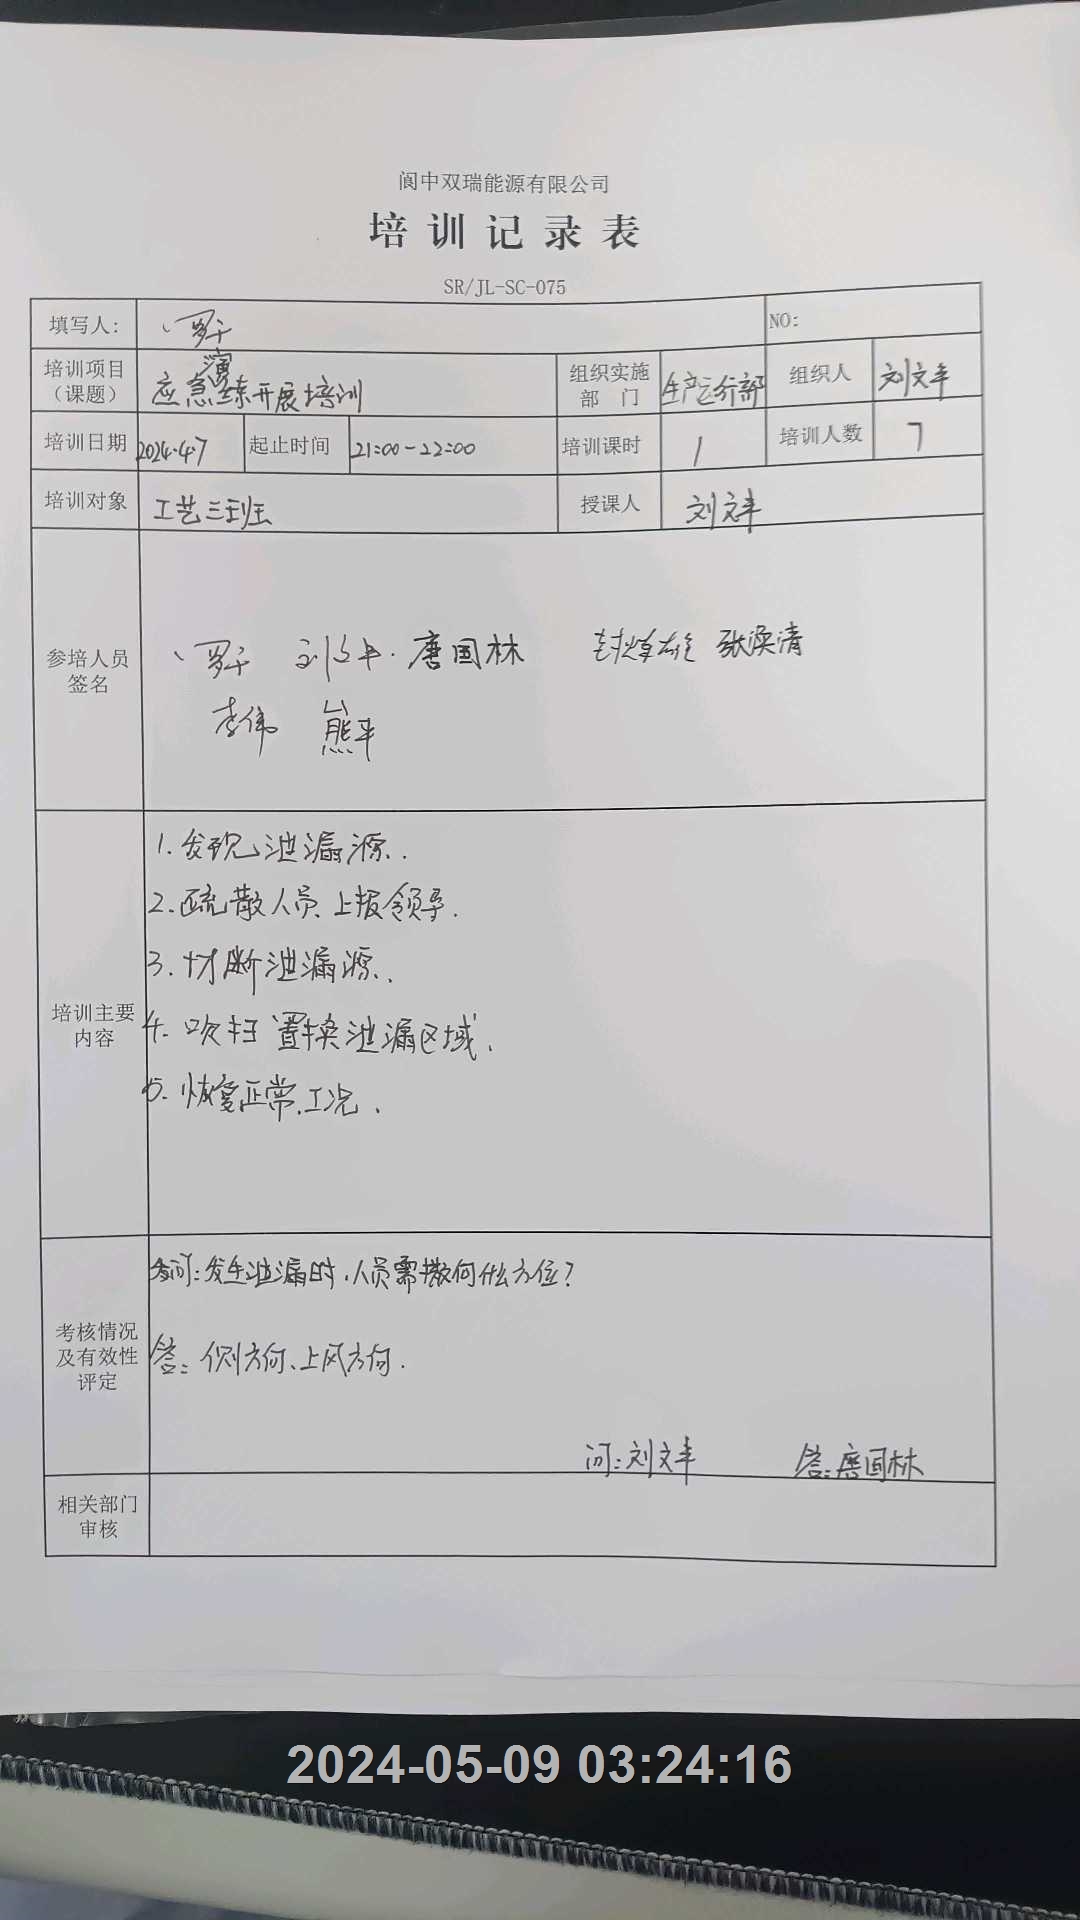 阆中双瑞能源有限公司
培训记录表
SR/JL-SC-075
填写人: 罗 NO:
培训项目(课题) 应急演练开展培训 组织实施部门 生产运行部 组织人 刘文丰
培训日期 2024.4.7 起止时间 21:00-22:00 培训课时 1 培训人数 7
培训对象 工艺三班 授课人 刘文丰
参培人员签名
罗 刘文丰 唐国林 张涣清
李伟 熊平
培训主要内容
1.发现泄漏源.
2.疏散人员、上报领导.
3.切断泄漏源.
4.吹扫置换泄漏区域.
5.恢复正常工况.
考核情况及有效性评定
问:发生泄漏时,人员需撤向什么方位?
答:侧方向、上风方向.
问:刘文丰 答:唐国林
相关部门审核
2024-05-09 03:24:16